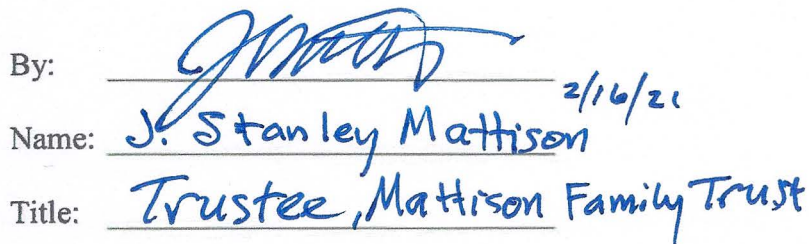 By:
2/16/21
Name: J. Stanley Mattison
Title: Trustee, Mattison Family Trust